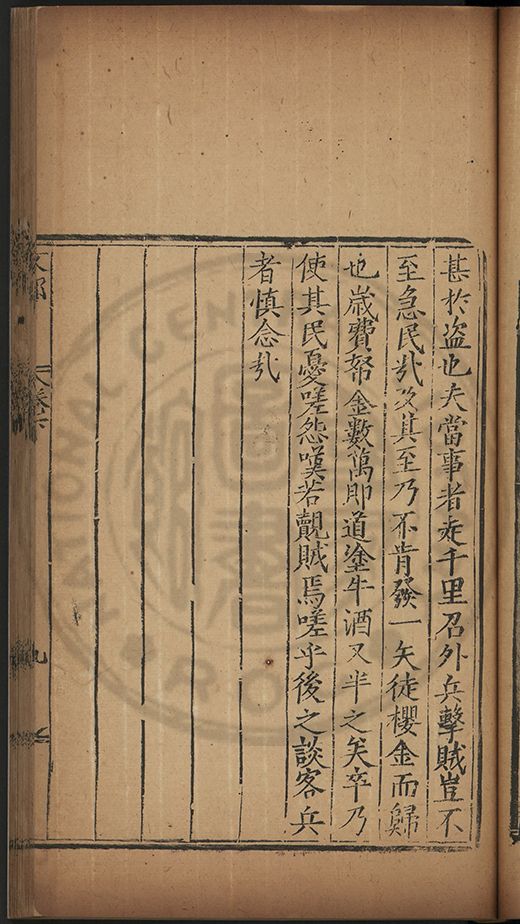 甚於盗也夫當事者走千里召外兵擊賊豈不
至急民㢤及其至乃不肯發一矢徒櫻金而歸
也歲費帑金數萬即道塗牛酒又半之矣卒乃
使其民憂嗟怨嘆若覿賊焉嗟乎後之談客兵
者慎念㢤
卷六
九